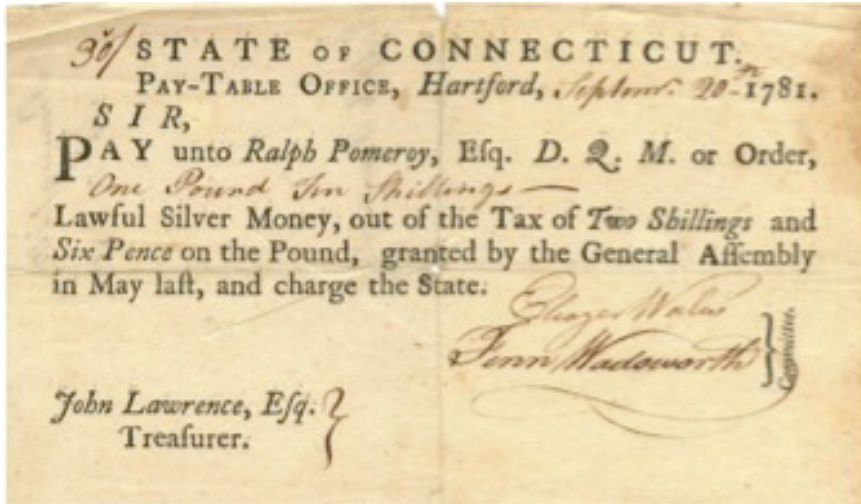 30/ STATE OF CONNECTICUT.
PAY-TABLE OFFICE, Hartford, Septemr. 20th 1781.
SIR,
PAY unto Ralph Pomeroy, Eſq. D. Q. M. or Order,
One Pound Ten Shillings—
Lawful Silver Money, out of the Tax of Two Shillings and
Six Pence on the Pound, granted by the General Aſſembly
in May laſt, and charge the State.
Eleazer Wales
Fenn Wadsworth } Committee.
John Lawrence, Eſq. }
Treaſurer.